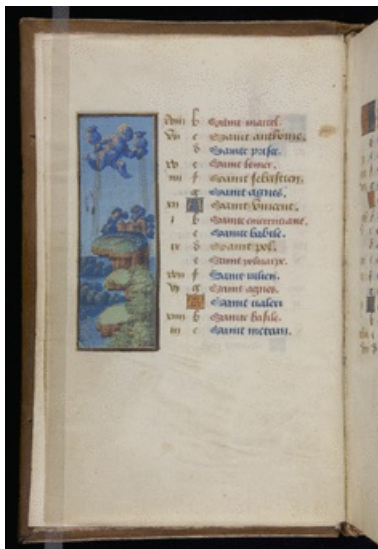 xviii b Saint marcel.
vii c Saint anthoine.
d Sainte prisce.
xv e Saint lomer.
iiii f Saint sebastien.
g Saint agnes.
xii A Saint vincent.
i b Sainte emerentiane.
c Sainte babile.
ix d Saint pol.
e Saint policarpe.
xvii f Saint iulien.
vi g Saint agnes.
A Saint valeri
xiiii b Sainte basile.
iii c Saint